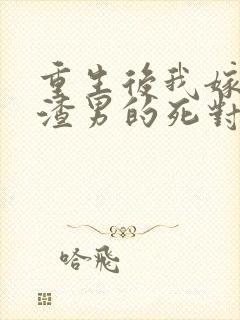 重生後我嫁
渣男的死對
哈飛